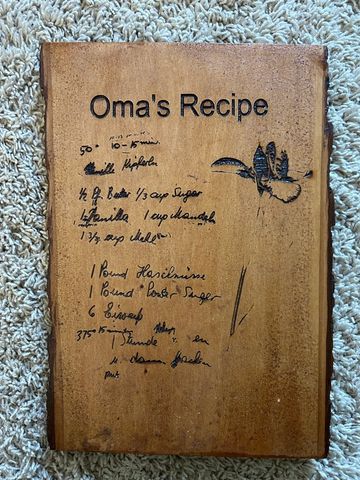 Oma's Recipe
10-15 min.
50°
Vanille Kipferln
½ Pf. Butter ⅓ cup Sugar
Vanilla 1 cup Mandeln
1 ⅔ cup Mehl
1 Pound Haselnüsse
1 Pound Powder Sugar
6 Eiweiß
375° 15 min
1 Stunde
u. dann backen